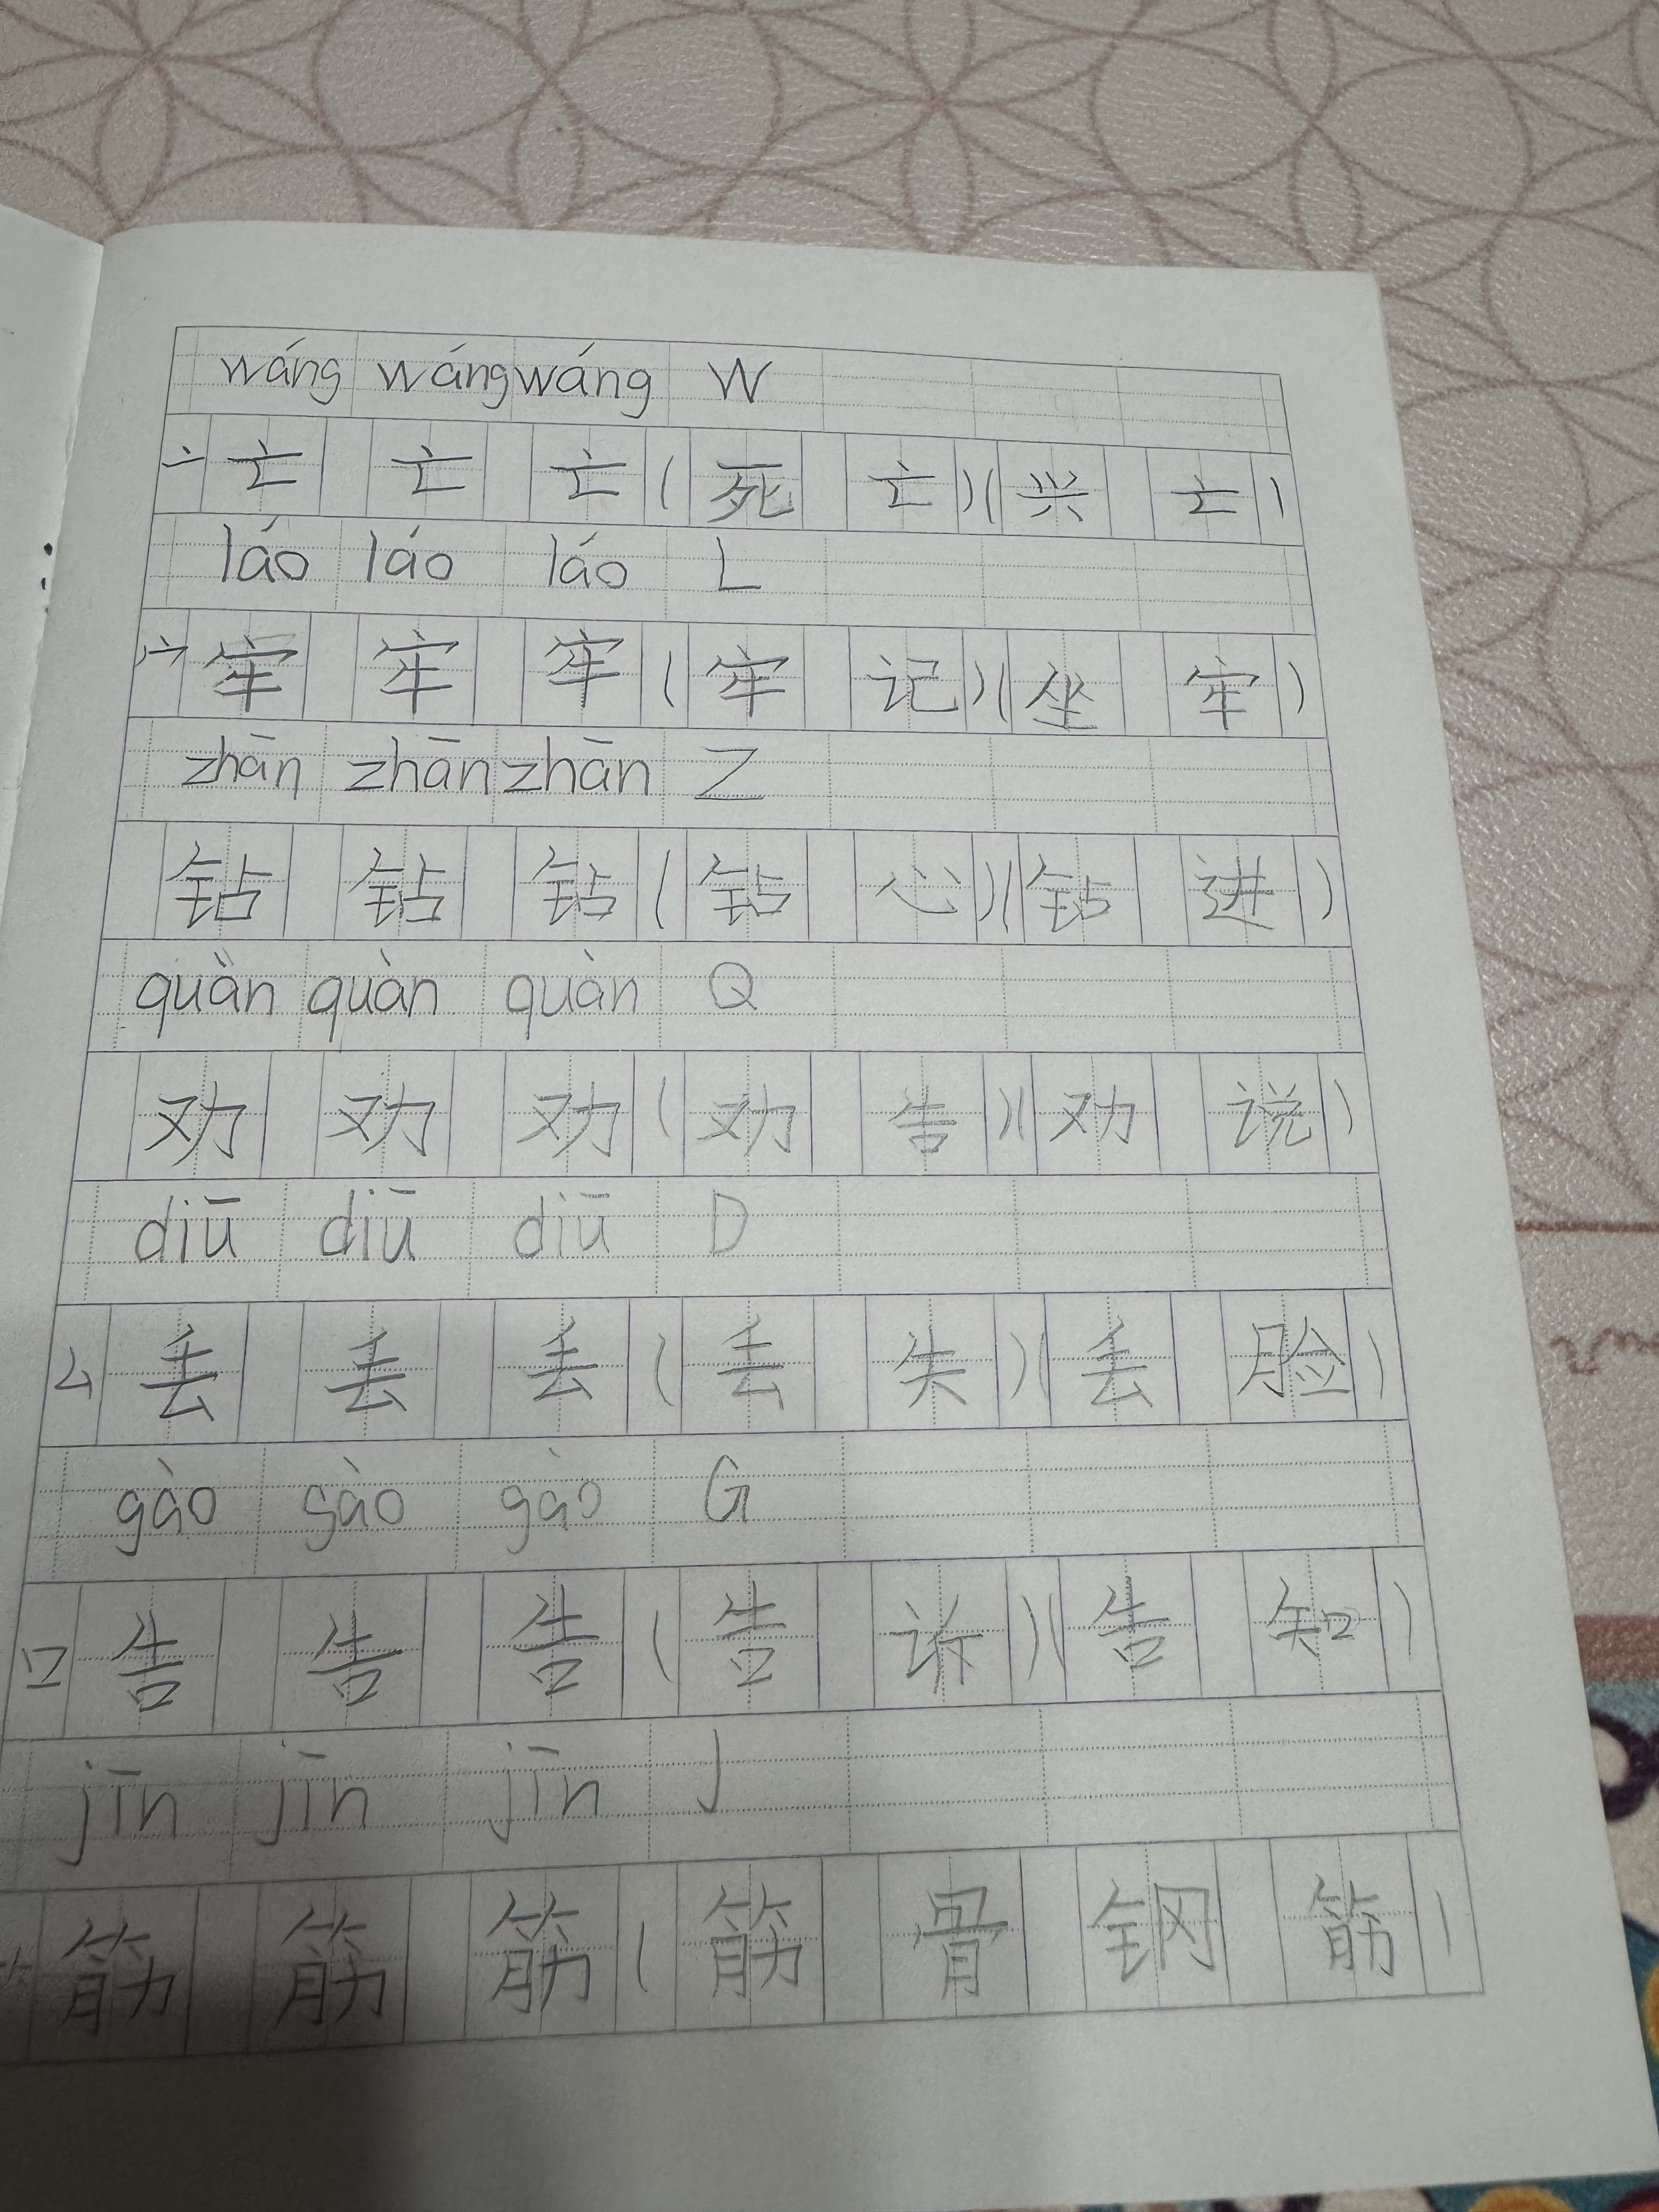 wáng wáng wáng W
亠 亡 亡 亡 (死亡)(兴亡)
láo láo láo L
宀 牢 牢 牢 (牢记)(坐牢)
zhān zhān zhān Z
钻 钻 钻 (钻心)(钻进)
quàn quàn quàn Q
劝 劝 劝 (劝告)(劝说)
diū diū diū D
厶 丢 丢 丢 (丢失)(丢脸)
gào gào gào G
口 告 告 告 (告诉)(告知)
jīn jīn jīn J
筋 筋 筋 (筋骨 钢筋)